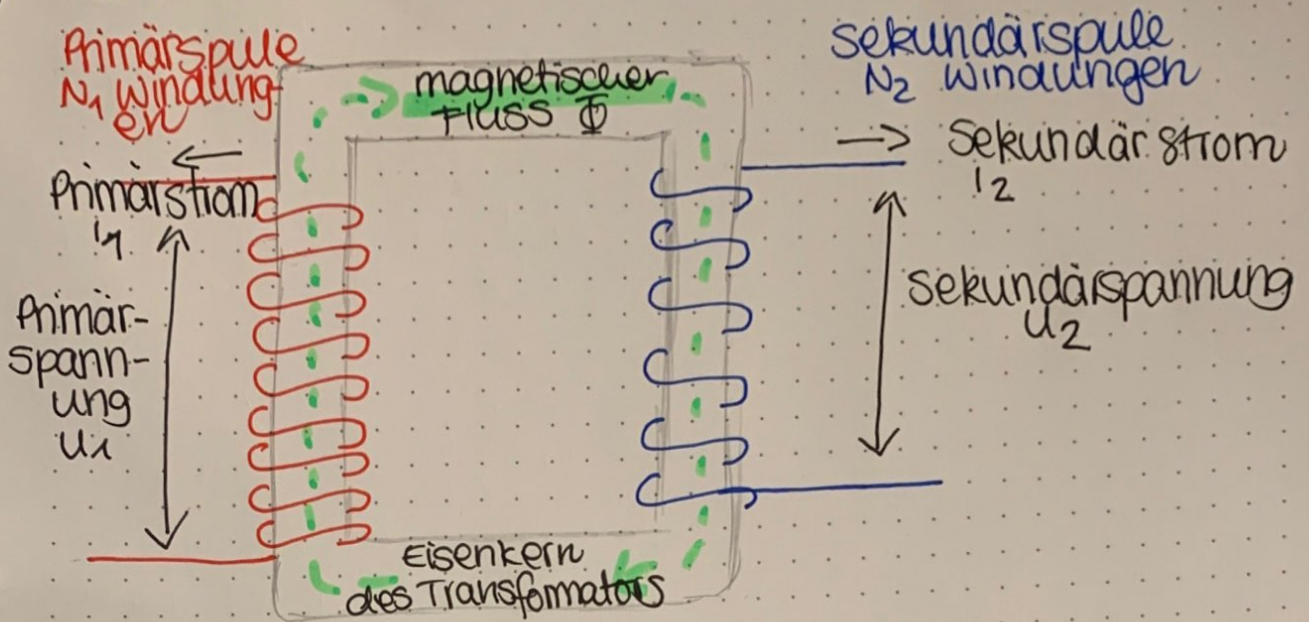 Primärspule
N₁ Windung-
en
magnetischer
Fluss Φ
Sekundärspule
N₂ Windungen
Primärstrom
I₁
Sekundärstrom
I₂
Primär-
spann-
ung
U₁
Sekundärspannung
U₂
Eisenkern
des Transformators